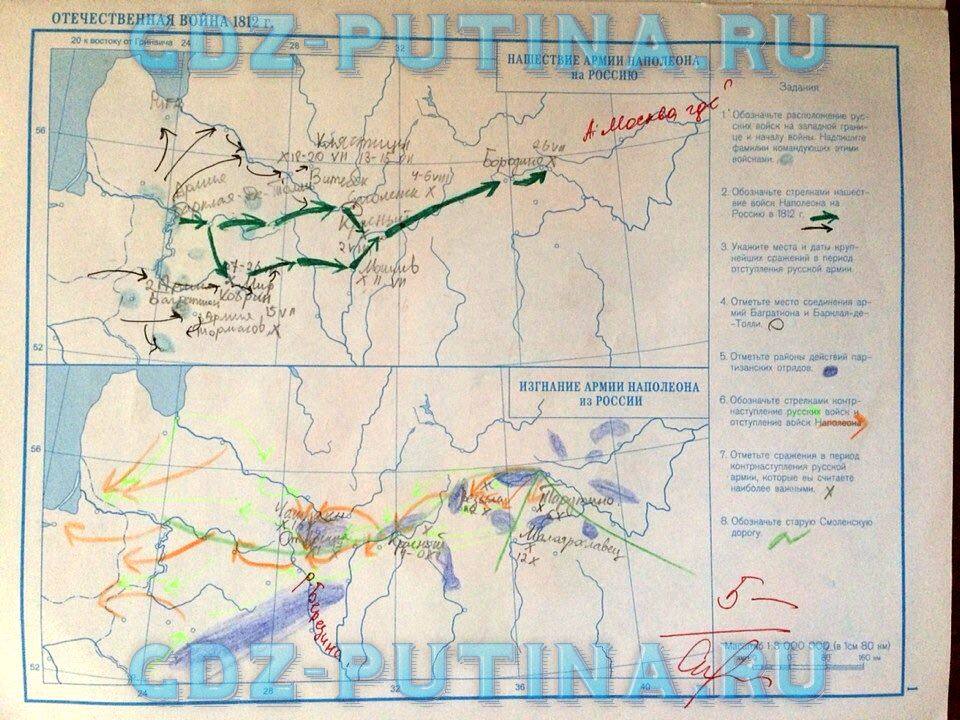 ОТЕЧЕСТВЕННАЯ ВОЙНА 1812 г.
GDZ-PUTINA.RU
20 к востоку от Гринвича 24 28 32
НАШЕСТВИЕ АРМИИ НАПОЛЕОНА
на РОССИЮ
А Москва где"
56
Рига
Клястицы
X 18-20 VII 13-15 VII
Витебск
26 VII
Бородино X
4-6 VIII
Смоленск X
Армия
Барклая-де-Толли
Красный
2 VIII
Могилев
X 11 VII
27-28
Мир
2 Армия
Багратион
Кобрин
15 VII
3 Армия
Тормасов X
52
Задания
1. Обозначьте расположение рус-
ских войск на западной грани-
це и началу войны. Надпишите
фамилии командующих этими
войсками.
2. Обозначьте стрелками нашест-
вие войск Наполеона на
Россию в 1812 г.
3. Укажите места и даты круп-
нейших сражений в период
отступления русской армии.
4. Отметьте место соединения ар-
мий Багратиона и Барклая-де-
-Толли.
5. Отметьте районы действий пар-
тизанских отрядов.
6. Обозначьте стрелками контр-
наступление русских войск и
отступление войск Наполеона
7. Отметьте сражения в период
контрнаступления русской
армии, которые вы считаете
наиболее важными. X
8. Обозначьте старую Смоленскую
дорогу.
ИЗГНАНИЕ АРМИИ НАПОЛЕОНА
из РОССИИ
56
Тарутино
6 X
Вязьма
22 X
Чашники
X
Красный
X
Малоярославец
X
12 X
р. Березина
5-
Масштаб 1:8 000 000 (в 1см 80 км)
80 0 80 160 км
52
24 28 32 36 40
GDZ-PUTINA.RU
1